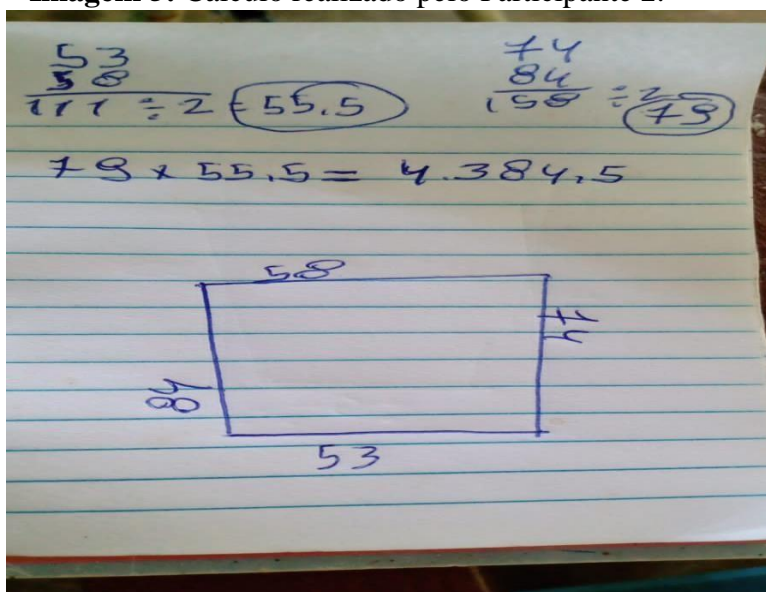 Imagem 3: Cálculo realizado pelo Participante 2.
53
58
111 ÷ 2 = 55.5
74
84
158 ÷ 2 = 79
79 x 55.5 = 4.384,5
58
74
84
53